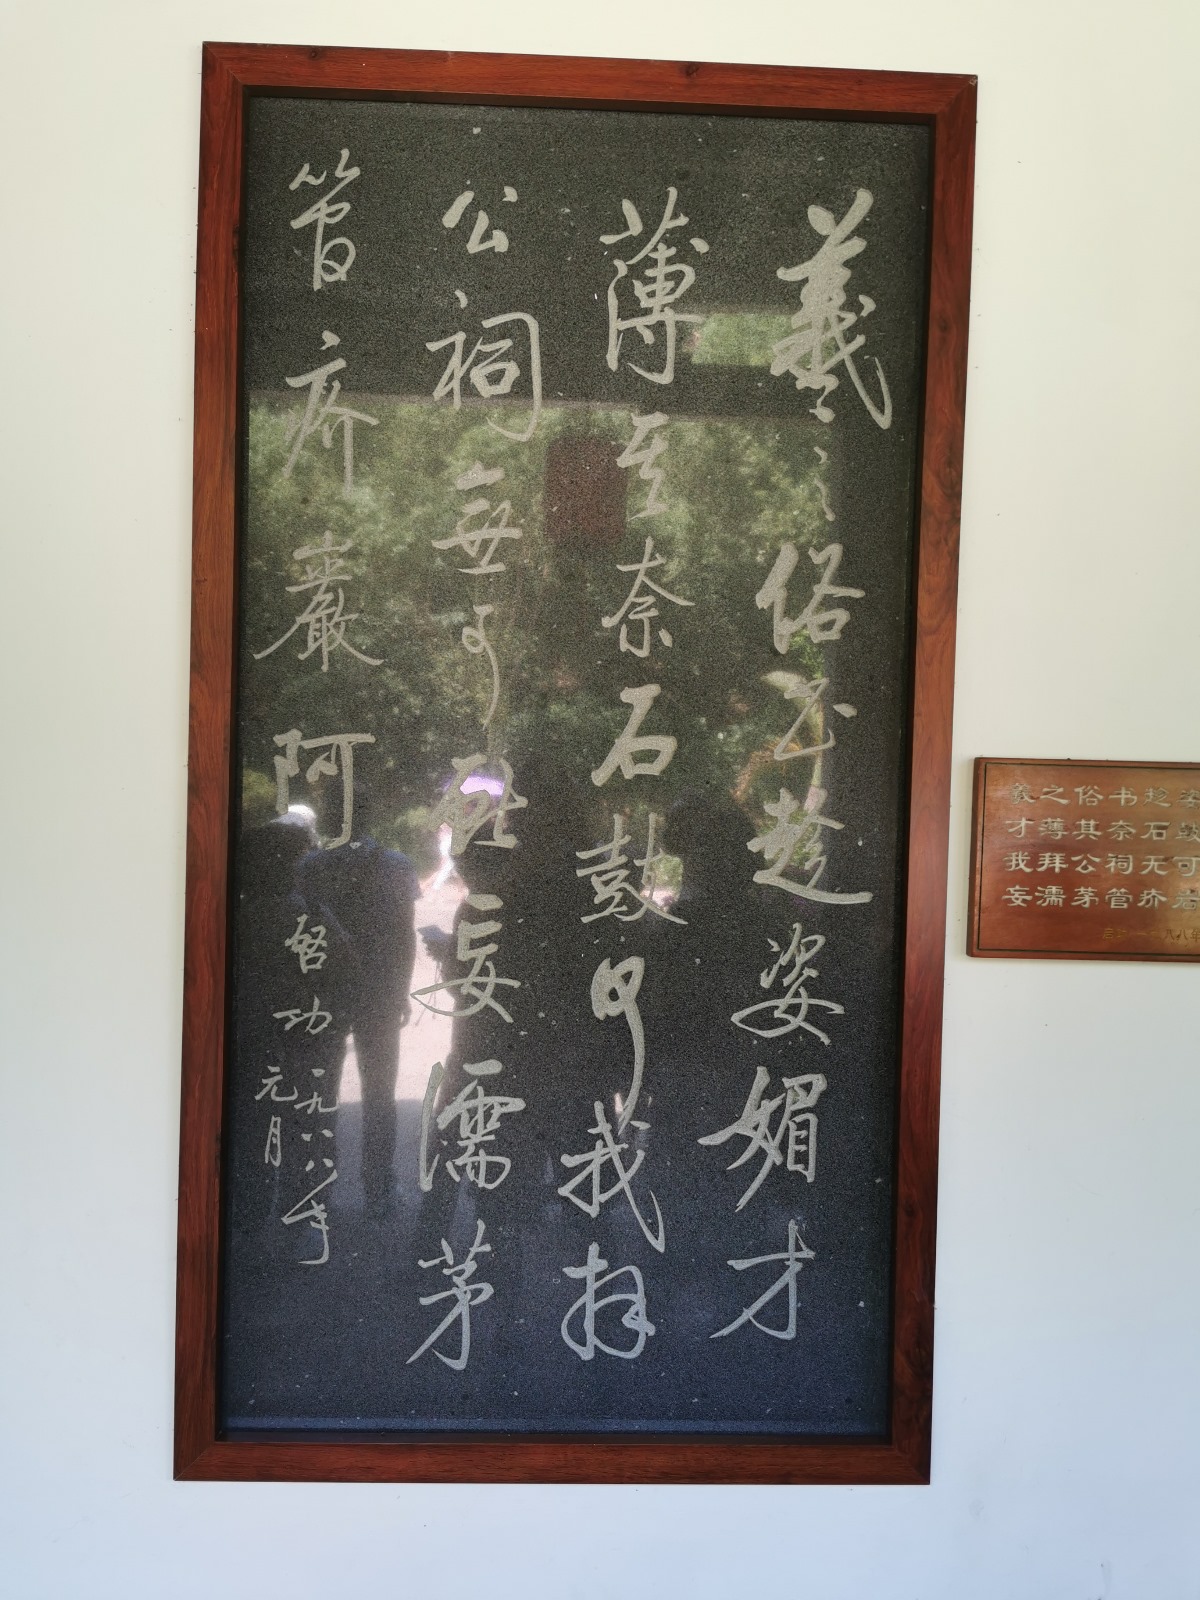 羲之俗書趁姿媚才
薄其奈石鼓何我拜
公祠無可献妄濡茅
管疥巖阿
啓功
一九八八年
元月
羲之俗书趁姿
才薄其奈石鼓
我拜公祠无可
妄濡茅管疥岩
启功一九八八年